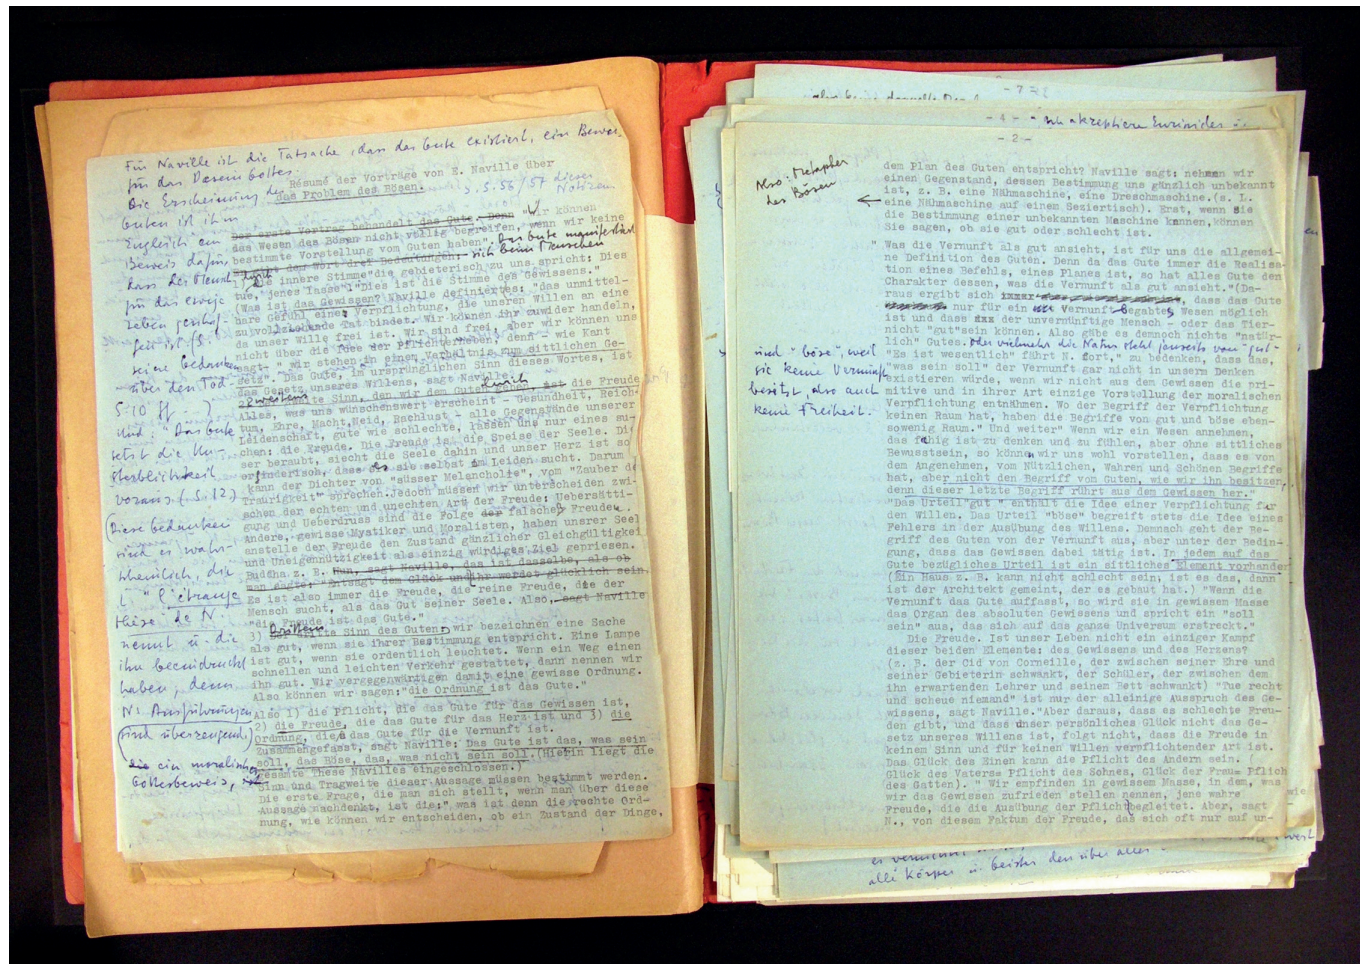 Für Naville ist die Tatsache, dass das Gute existiert, ein Beweis
für das Dasein Gottes.
Die Erscheinung des
Guten ist ihm
zugleich ein
Beweis dafür,
dass der Mensch
für das ewige
Leben geschaf-
fen ist (s.
seine Gedanken
über den Tod
S. 10 ff
und "Das Gute
setzt die Un-
sterblichkeit
voraus (S. 12)
(Diese Gedanken
sind es wahr-
scheinlich, die
L. "l'étrange
thèse de N."
nennt u. die
ihn beeindruckt
haben, denn
N's Ausführungen
sind überzeugend)
ein moralischer
Gottesbeweis,
Résumé der Vorträge von E. Naville über
das Problem des Bösen.
s. S. 56/57 dieser
Notizen
Der erste Vortrag behandelt das Gute. Denn wir können
das Wesen des Bösen nicht völlig begreifen, wenn wir keine
bestimmte Vorstellung vom Guten haben". Das Gute manifestiert
hat das Wort drei Bedeutungen: sich beim Menschen
1) durch die innere Stimme "die gebieterisch zu uns spricht: Dies
tue, "jenes lasse"! "Dies ist die Stimme des Gewissens."
(Was ist das Gewissen? Naville definiert es: "das unmittel-
bare Gefühl einer Verpflichtung, die unseren Willen an eine
zu vollziehende Tat bindet. Wir können ihr zuwider handeln,
da unser Wille frei ist. Wir sind frei, aber wir können uns
nicht über die Idee der Pflicht erheben, denn - wie Kant
sagt- " wir stehen in einem Verhältnis zum sittlichen Ge-
setz". Das Gute, im ursprünglichen Sinn dieses Wortes, ist
das Gesetz unseres Willens, sagt Naville.
2) zweitens der zweite Sinn, den wir dem Guten geben, ist durch die Freude
Alles, was uns wünschenswert erscheint - Gesundheit, Reich-
tum, Ehre, Macht, Neid, Rachlust - alle Gegenstände unserer
Leidenschaft, gute wie schlechte, lassen uns nur eines su-
chen: die Freude. Die Freude ist die Speise der Seele. Die-
ser beraubt, siecht die Seele dahin und unser Herz ist so
erfinderisch, dass es sie selbst im Leiden sucht. Darum
kann der Dichter von "süsser Melancholie", vom "Zauber der
Traurigkeit" sprechen. Jedoch müssen wir unterscheiden zwi-
schen der echten und unechten Art der Freude: Uebersätti-
gung und Ueberdruss sind die Folge der falschen Freuden.
Anders, gewisse Mystiker und Moralisten, haben unsrer Seele
anstelle der Freude den Zustand gänzlicher Gleichgültigkeit
und Uneigennützigkeit als einzig würdiges Ziel gepriesen.
Buddha z. B. Nun, sagt Naville, das ist dasselbe, als ob
man sagte: "Entsagt dem Glück und ihr werdet glücklich sein.
Es ist also immer die Freude, die reine Freude, die der
Mensch sucht, als das Gut seiner Seele. Also, sagt Naville
"die Freude ist das Gute."
3) Drittens Der dritte Sinn des Guten: wir bezeichnen eine Sache
als gut, wenn sie ihrer Bestimmung entspricht. Eine Lampe
ist gut, wenn sie ordentlich leuchtet. Wenn ein Weg einen
schnellen und leichten Verkehr gestattet, dann nennen wir
ihn gut. Wir vergegenwärtigen damit eine gewisse Ordnung.
Also können wir sagen: "die Ordnung ist das Gute."
Also 1) die Pflicht, die das Gute für das Gewissen ist,
2) die Freude, die das Gute für das Herz ist und 3) die
Ordnung, die das Gute für die Vernunft ist.
Zusammengefasst, sagt Naville: Das Gute ist das, was sein
soll, das Böse, das, was nicht sein soll. (Hierin liegt die
gesamte These Navilles eingeschlossen.)
Sinn und Tragweite dieser Aussage müssen bestimmt werden.
Die erste Frage, die man sich stellt, wenn man über diese
Aussage nachdenkt, ist die: " was ist denn die rechte Ord-
nung, wie können wir entscheiden, ob ein Zustand der Dinge,
- 7 -
- 4 -
ich akzeptiere Euripides
- 2 -
Also: Metapher
des Bösen
dem Plan des Guten entspricht? Naville sagt: nehmen wir
einen Gegenstand, dessen Bestimmung uns gänzlich unbekannt
ist, z. B. eine Nähmaschine, eine Dreschmaschine.(s. L.
eine Nähmaschine auf einem Seziertisch). Erst, wenn Sie
die Bestimmung einer unbekannten Maschine kennen, können
Sie sagen, ob sie gut oder schlecht ist.
" Was die Vernunft als gut ansieht, ist für uns die allgemei-
ne Definition des Guten. Denn da das Gute immer die Realisa-
tion eines Befehls, eines Planes ist, so hat alles Gute den
Charakter dessen, was die Vernunft als gut ansieht."(Da-
raus ergibt sich, dass das Gute
nur für ein mit Vernunft begabtes Wesen möglich
ist und dass der unvernünftige Mensch - oder das Tier-
nicht "gut" sein können. Also gäbe es demnoch nichts "natür-
lich" Gutes. oder vielmehr die Natur steht jenseits von gut-
und "böse", weil
sie keine Vernunft
besitzt, also auch
keine Freiheit.
"Es ist wesentlich" fährt N. fort," zu bedenken, dass das,
"was sein soll" der Vernunft gar nicht in unserm Denken
existieren würde, wenn wir nicht aus dem Gewissen die pri-
mitive und in ihrer Art einzige Vorstellung der moralischen
Verpflichtung entnähmen. Wo der Begriff der Verpflichtung
keinen Raum hat, haben die Begriffe von gut und böse eben-
sowenig Raum." Und weiter" Wenn wir ein Wesen annehmen,
das fähig ist zu denken und zu fühlen, aber ohne sittliches
Bewusstsein, so können wir uns wohl vorstellen, dass es von
dem Angenehmen, vom Nützlichen, Wahren und Schönen Begriffe
hat, aber nicht den Begriff vom Guten, wie wir ihn besitzen,
denn dieser letzte Begriff rührt aus dem Gewissen her."
"Das Urteil "gut" enthält die Idee einer Verpflichtung für
den Willen. Das Urteil "böse" begreift stets die Idee eines
Fehlers in der Ausübung des Willens. Demnach geht der Be-
griff des Guten von der Vernunft aus, aber unter der Bedin-
gung, dass das Gewissen dabei tätig ist. In jedem auf das
Gute bezügliches Urteil ist ein sittliches Element vorhanden
(Ein Haus z. B. kann nicht schlecht sein, ist es das, dann
ist der Architekt gemeint, der es gebaut hat.) "Wenn die
Vernunft das Gute auffasst, so wird sie in gewissem Masse
das Organ des absoluten Gewissens und spricht ein "soll
sein" aus, das sich auf das ganze Universum erstreckt."
Die Freude. Ist unser Leben nicht ein einziger Kampf
dieser beiden Elemente: des Gewissens und des Herzens?
(z. B. der Cid von Corneille, der zwischen seiner Ehre und
seiner Gebieterin schwankt, der Schüler, der zwischen dem
ihn erwartenden Lehrer und seinem Bett schwankt) "Tue recht
und scheue niemand" ist nur der alleinige Ausspruch des Ge-
wissens, sagt Naville. "Aber daraus, dass es schlechte Freu-
den gibt, und dass unser persönliches Glück nicht das Ge-
setz unseres Willens ist, folgt nicht, dass die Freude in
keinem Sinn und für keinen Willen verpflichtender Art ist.
Das Glück des Einen kann die Pflicht des Andern sein. (
Glück des Vaters= Pflicht des Sohnes, Glück der Frau= Pflicht
des Gatten). " Wir empfinden in gewissem Masse, in dem, was
wir das Gewissen zufrieden stellen nennen, jene wahre
Freude, die die Ausübung der Pflicht begleitet. Aber, sagt
N., von diesem Faktum der Freude, das sich oft nur auf un-
alle Körper u. Geister den über alles